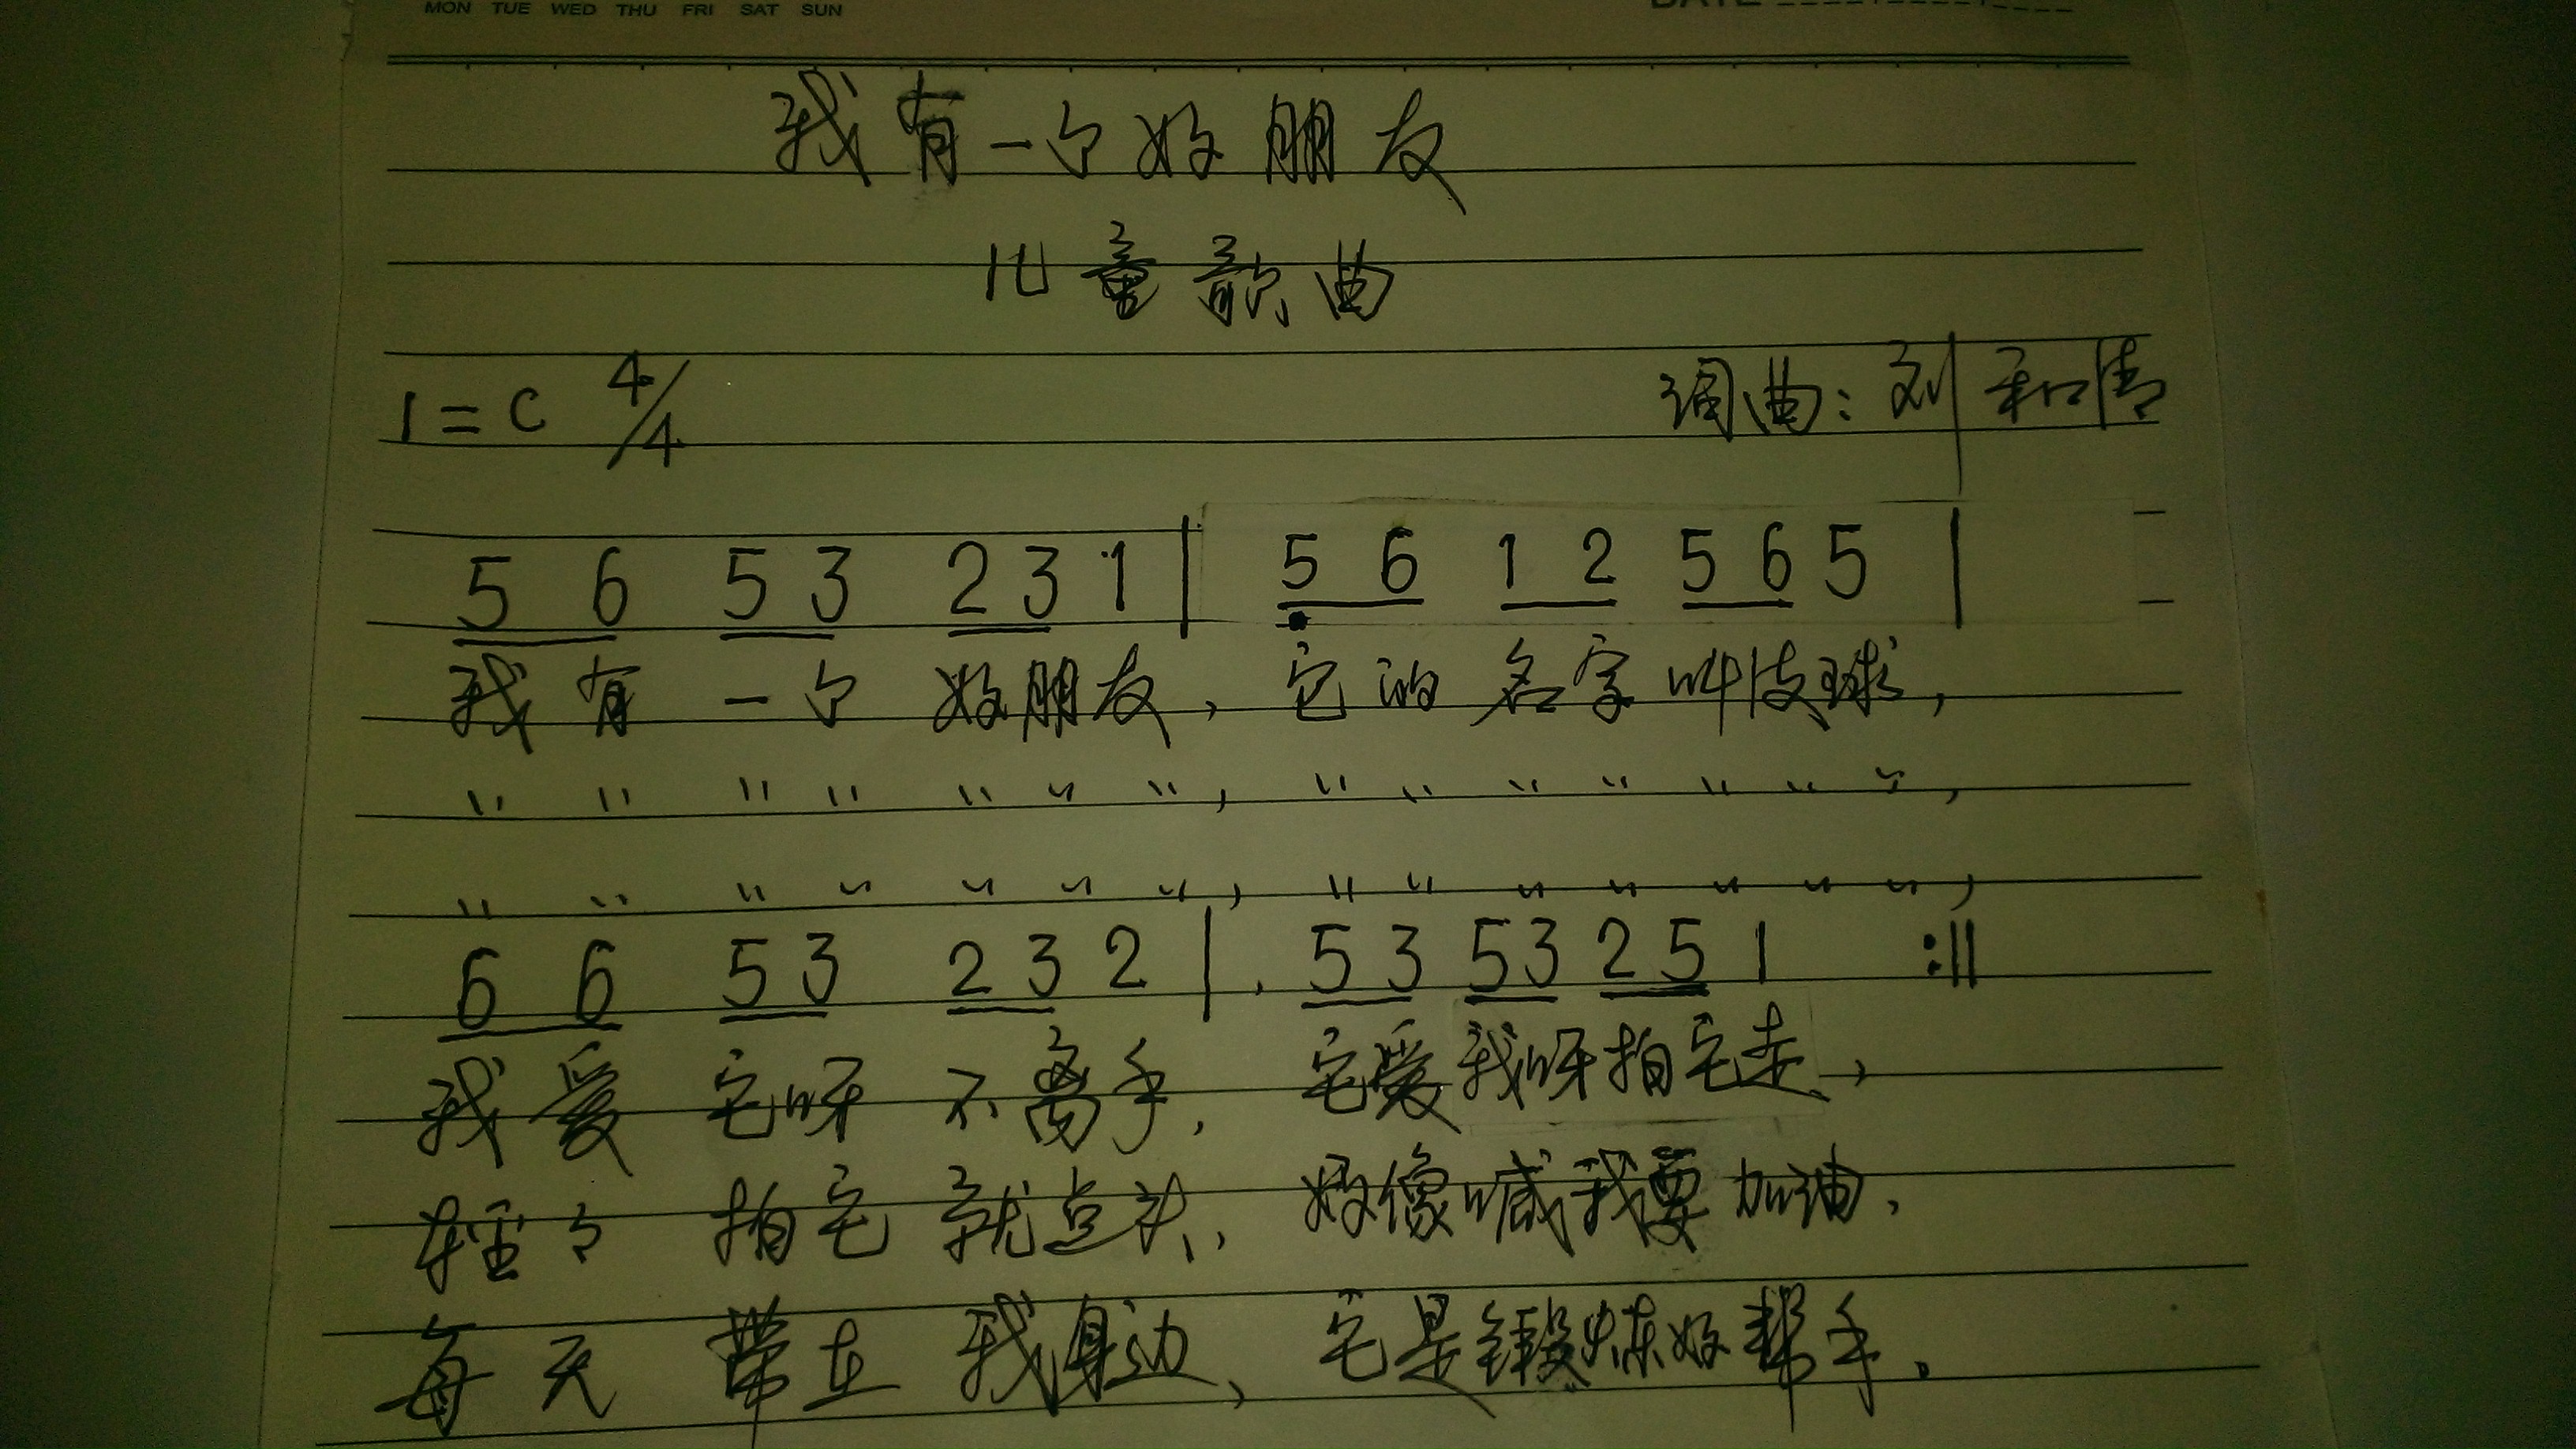 MON TUE WED THU FRI SAT SUN DATE
我有一个好朋友
儿童歌曲
1=C 4/4 词曲：刘和清
5 6 5 3 2 3 1 | 5 6 1 2 5 6 5 |
我有一个好朋友，它的名字叫皮球，
〃 〃 〃 〃 〃 〃 〃，〃 〃 〃 〃 〃 〃 〃，
〃 〃 〃 〃 〃 〃 〃，〃 〃 〃 〃 〃 〃 〃，
6 6 5 3 2 3 2 | 5 3 5 3 2 5 1 :||
我爱它呀不离手，它爱我呀拍它走，
轻々拍它就点头，好像喊我要加油，
每天带在我身边，它是锻炼好帮手。